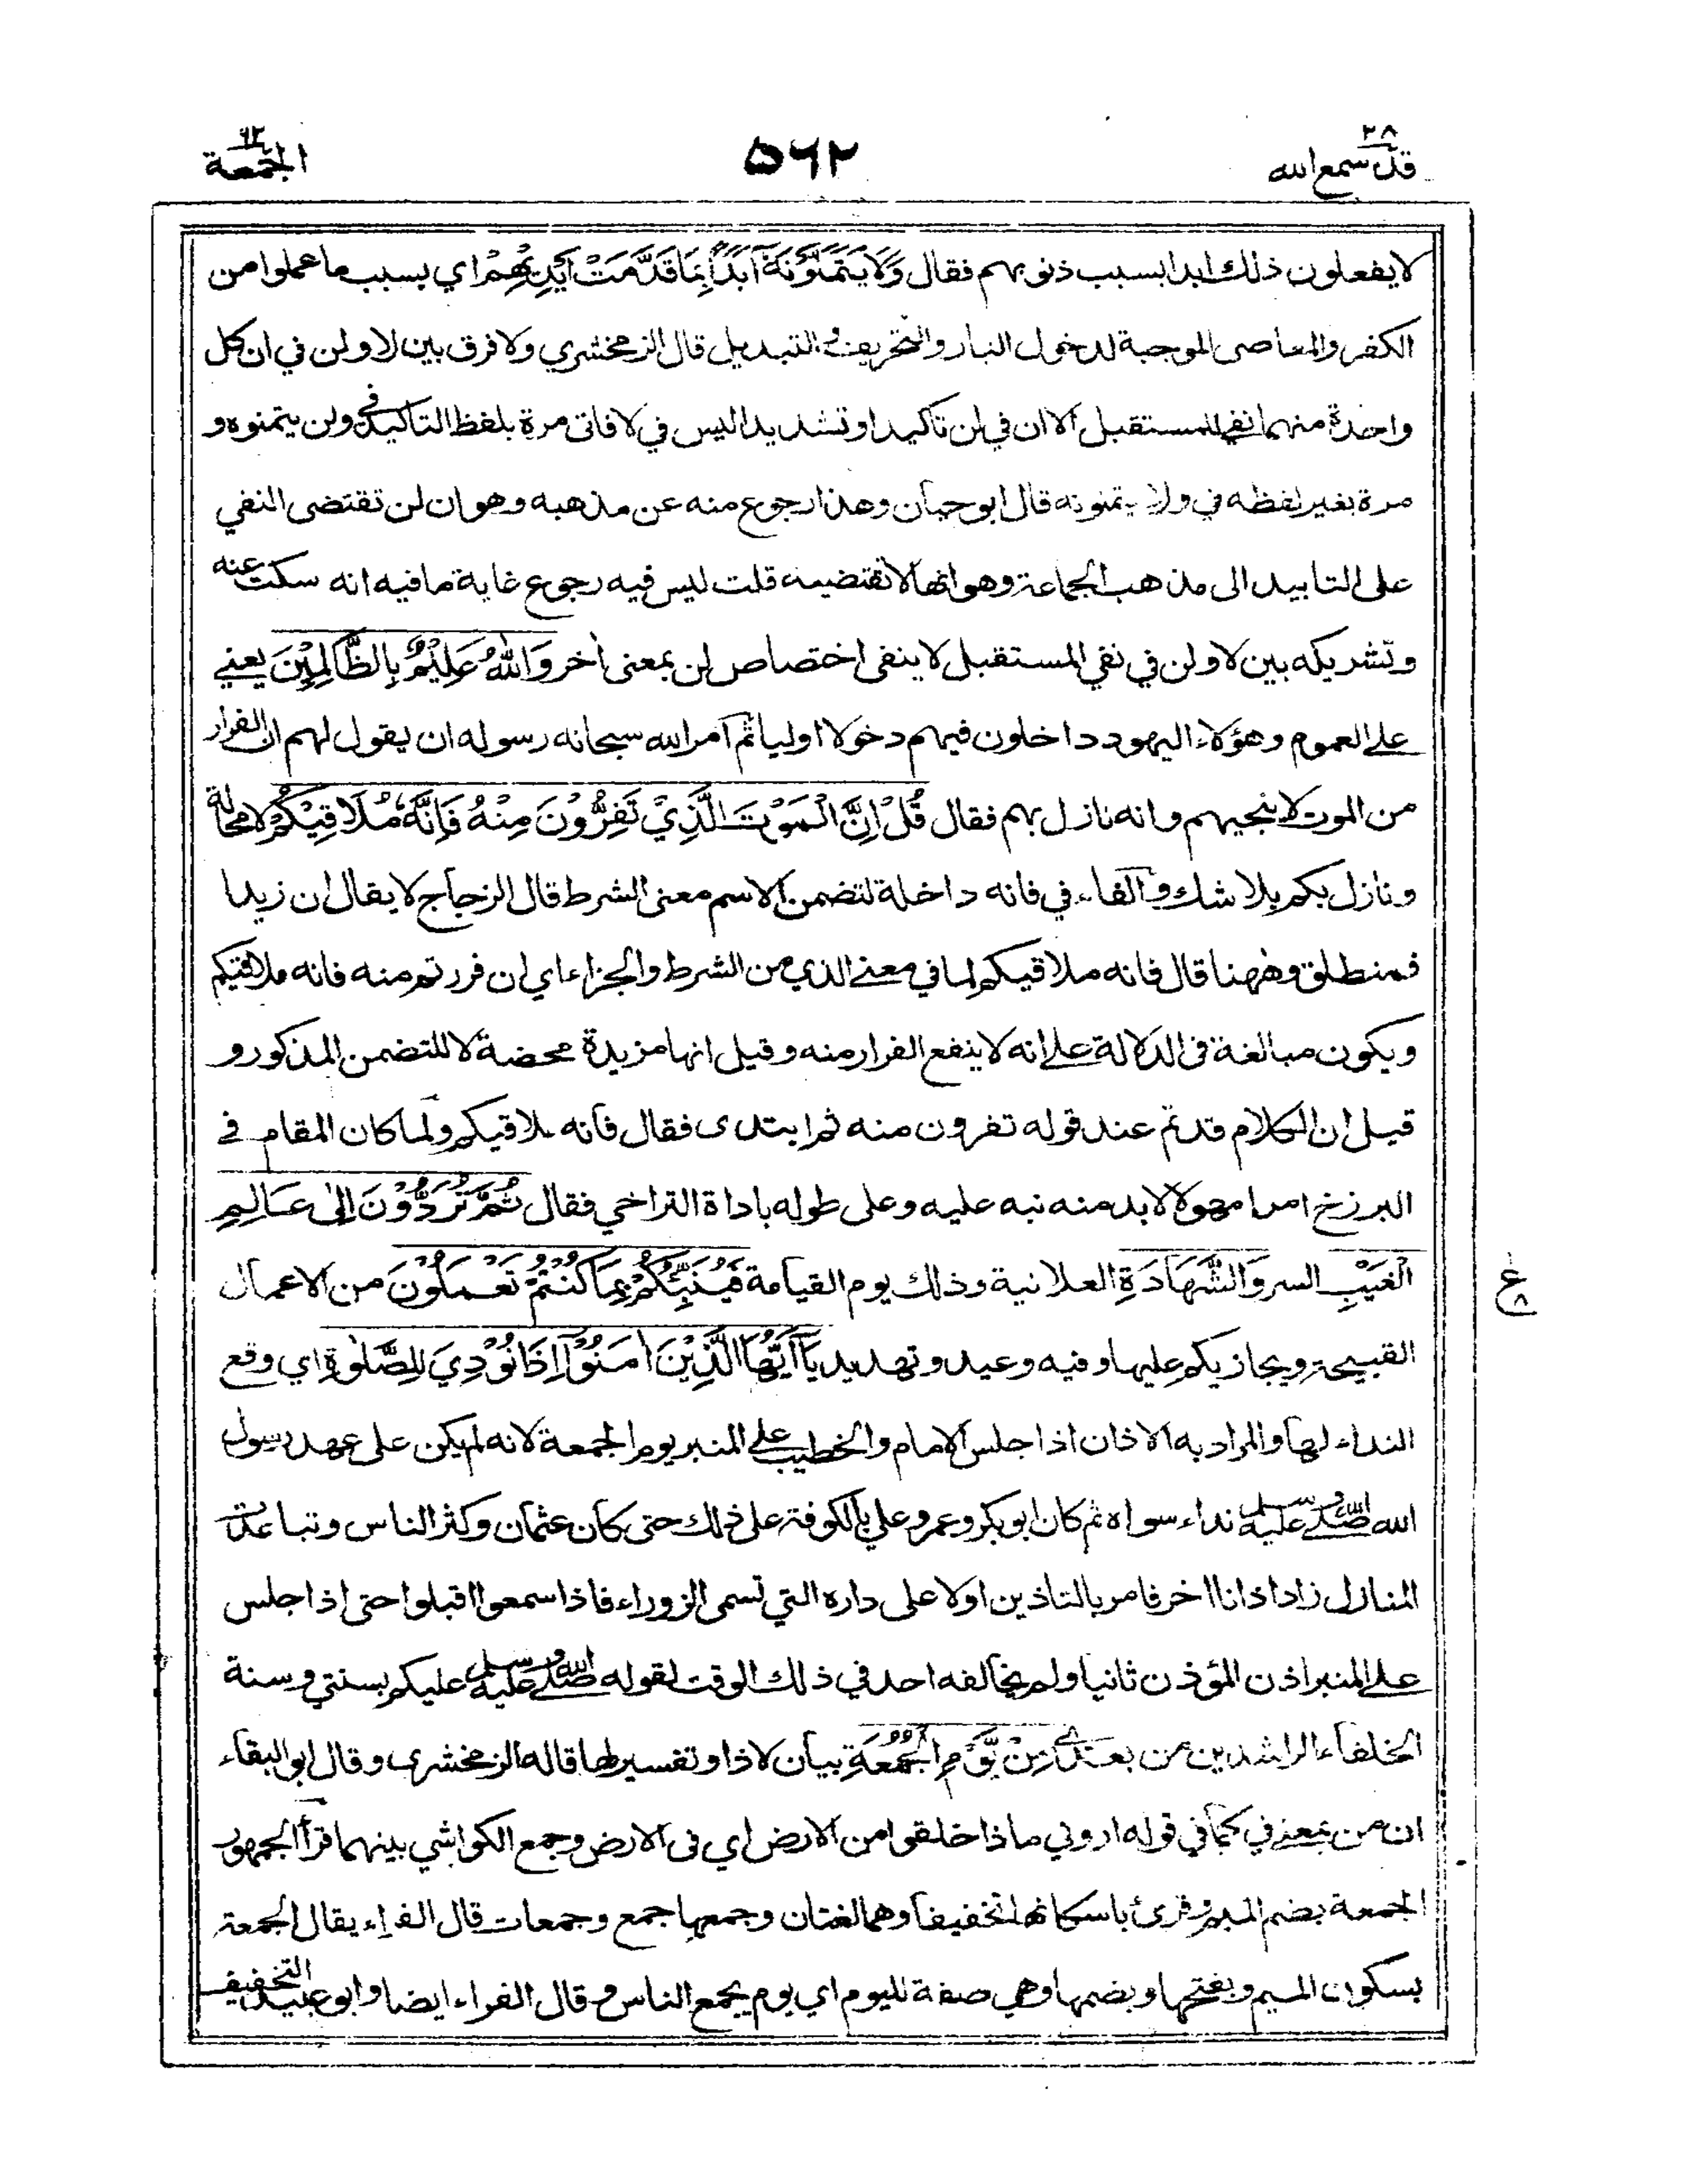 ٢٨
قد سمع الله
٥٦٢
٦٢
الجمعة
لا يفعلون ذلك ابدا بسبب ذنوبهم فقال وَلَا يَتَمَنَّوْنَهٗٓ اَبَدًاۢ بِمَا قَدَّمَتْ اَيْدِيْهِمْ اي بسبب ما عملوا من
الكفر والمعاصى الموجبة لدخول النار والتحريف والتبديل قال الزمخشري ولا فرق بين لا ولن في ان كل
واحدة منهما نفي للمستقبل الا ان في لن تاكيدا وتشديدا ليس في لا فاتى مرة بلفظ التاكيد في ولن يتمنوه و
مرة بغير لفظه في ولا يتمنونه قال ابو حيان وهذا رجوع منه عن مذهبه وهو ان لن تقتضى النفي
على التابيد الى مذهب الجماعة وهو انها لا تقتضيه قلت ليس فيه رجوع غاية ما فيه انه سكت عنه
وتشريكه بين لا ولن في نفي المستقبل لا ينفى اختصاص لن بمعنى اخر وَاللّٰهُ عَلِيْمٌۢ بِالظَّالِمِيْنَ يعني
على العموم وهؤلاء اليهود داخلون فيهم دخولا اوليا ثم امر الله سبحانه رسوله ان يقول لهم ان الفرار
من الموت لا ينجيهم وانه نازل بهم فقال قُلْ اِنَّ الْمَوْتَ الَّذِيْ تَفِرُّوْنَ مِنْهُ فَاِنَّهٗ مُلَاقِيْكُمْ لا محالة
ونازل بكم بلا شك والفاء في فانه داخلة لتضمن الاسم معنى الشرط قال الزجاج لا يقال ان زيدا
فمنطلق وههنا قال فانه ملاقيكم لما في معنى الذي من الشرط والجزاء اي ان فررتم منه فانه ملاقيكم
ويكون مبالغة في الدلالة على انه لا ينفع الفرار منه وقيل انها مزيدة محضة لا للتضمن المذكور و
قيل ان الكلام قد تم عند قوله تفرون منه ثم ابتدى فقال فانه ملاقيكم ولما كان المقام في
البرزخ امرا مهولا لا بد منه نبه عليه وعلى طوله باداة التراخي فقال ثُمَّ تُرَدُّوْنَ اِلٰى عَالِمِ
الْغَيْبِ السر وَالشَّهَادَةِ العلانية وذلك يوم القيامة فَيُنَبِّئُكُمْ بِمَا كُنْتُمْ تَعْمَلُوْنَ من الاعمال
ع
٨
القبيحة ويجازيكم عليها وفيه وعيد وتهديد يٰٓاَيُّهَا الَّذِيْنَ اٰمَنُوْٓا اِذَا نُوْدِيَ لِلصَّلٰوةِ اي وقع
النداء لها والمراد به الاذان اذا جلس الامام والخطيب على المنبر يوم الجمعة لانه لم يكن على عهد رسول
الله صلى الله عليه وسلم نداء سواه ثم كان ابو بكر وعمر وعلي بالكوفة على ذلك حتى كان عثمان وكثر الناس وتباعدت
المنازل زاد اذانا اخر فامر بالتاذين اولا على داره التي تسمى الزوراء فاذا سمعوا اقبلوا حتى اذا جلس
على المنبر اذن المؤذن ثانيا ولم يخالفه احد في ذلك الوقت لقوله صلى الله عليه وسلم عليكم بسنتي وسنة
الخلفاء الراشدين من بعدي مِنْ يَّوْمِ الْجُمُعَةِ بيان لاذا وتفسير لها قاله الزمخشرى وقال ابو البقاء
ان من بمعنى في كما في قوله اروني ماذا خلقوا من الارض اي فى الارض وجمع الكواشي بينهما قرأ الجمهور
الجمعة بضم الميم وقرئ باسكانها تخفيفا وهما لغتان وجمعها جمع وجمعات قال الفراء يقال الجمعة
بسكون الميم وبفتحها وبضمها وهي صفة لليوم اي يوم يجمع الناس وقال الفراء ايضا وابو عبيد التخفيف